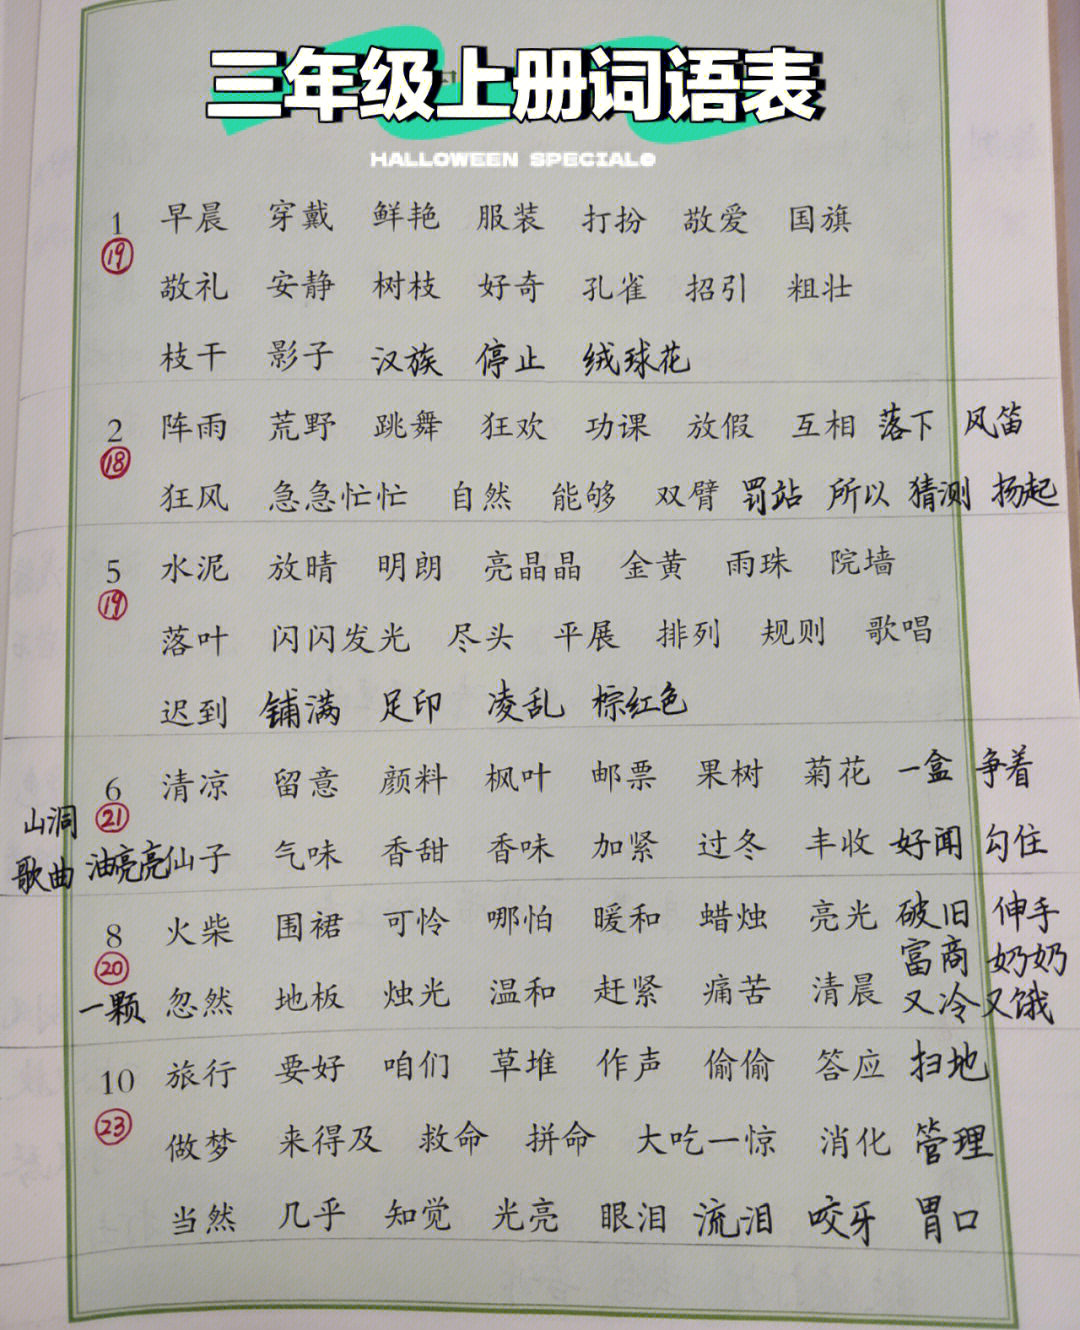 三年级上册词语表
HALLOWEEN SPECIAL@
1 早晨 穿戴 鲜艳 服装 打扮 敬爱 国旗
19 敬礼 安静 树枝 好奇 孔雀 招引 粗壮
枝干 影子 汉族 停止 绒球花
2 阵雨 荒野 跳舞 狂欢 功课 放假 互相 落下 风笛
18 狂风 急急忙忙 自然 能够 双臂 罚站 所以 猜测 扬起
5 水泥 放晴 明朗 亮晶晶 金黄 雨珠 院墙
19 落叶 闪闪发光 尽头 平展 排列 规则 歌唱
迟到 铺满 足印 凌乱 棕红色
6 清凉 留意 颜料 枫叶 邮票 果树 菊花 一盒 争着
山洞 21
歌曲 油亮亮 仙子 气味 香甜 香味 加紧 过冬 丰收 好闻 勾住
8 火柴 围裙 可怜 哪怕 暖和 蜡烛 亮光 破旧 伸手
20 富商 奶奶
一颗 忽然 地板 烛光 温和 赶紧 痛苦 清晨 又冷又饿
10 旅行 要好 咱们 草堆 作声 偷偷 答应 扫地
23 做梦 来得及 救命 拼命 大吃一惊 消化 管理
当然 几乎 知觉 光亮 眼泪 流泪 咬牙 胃口